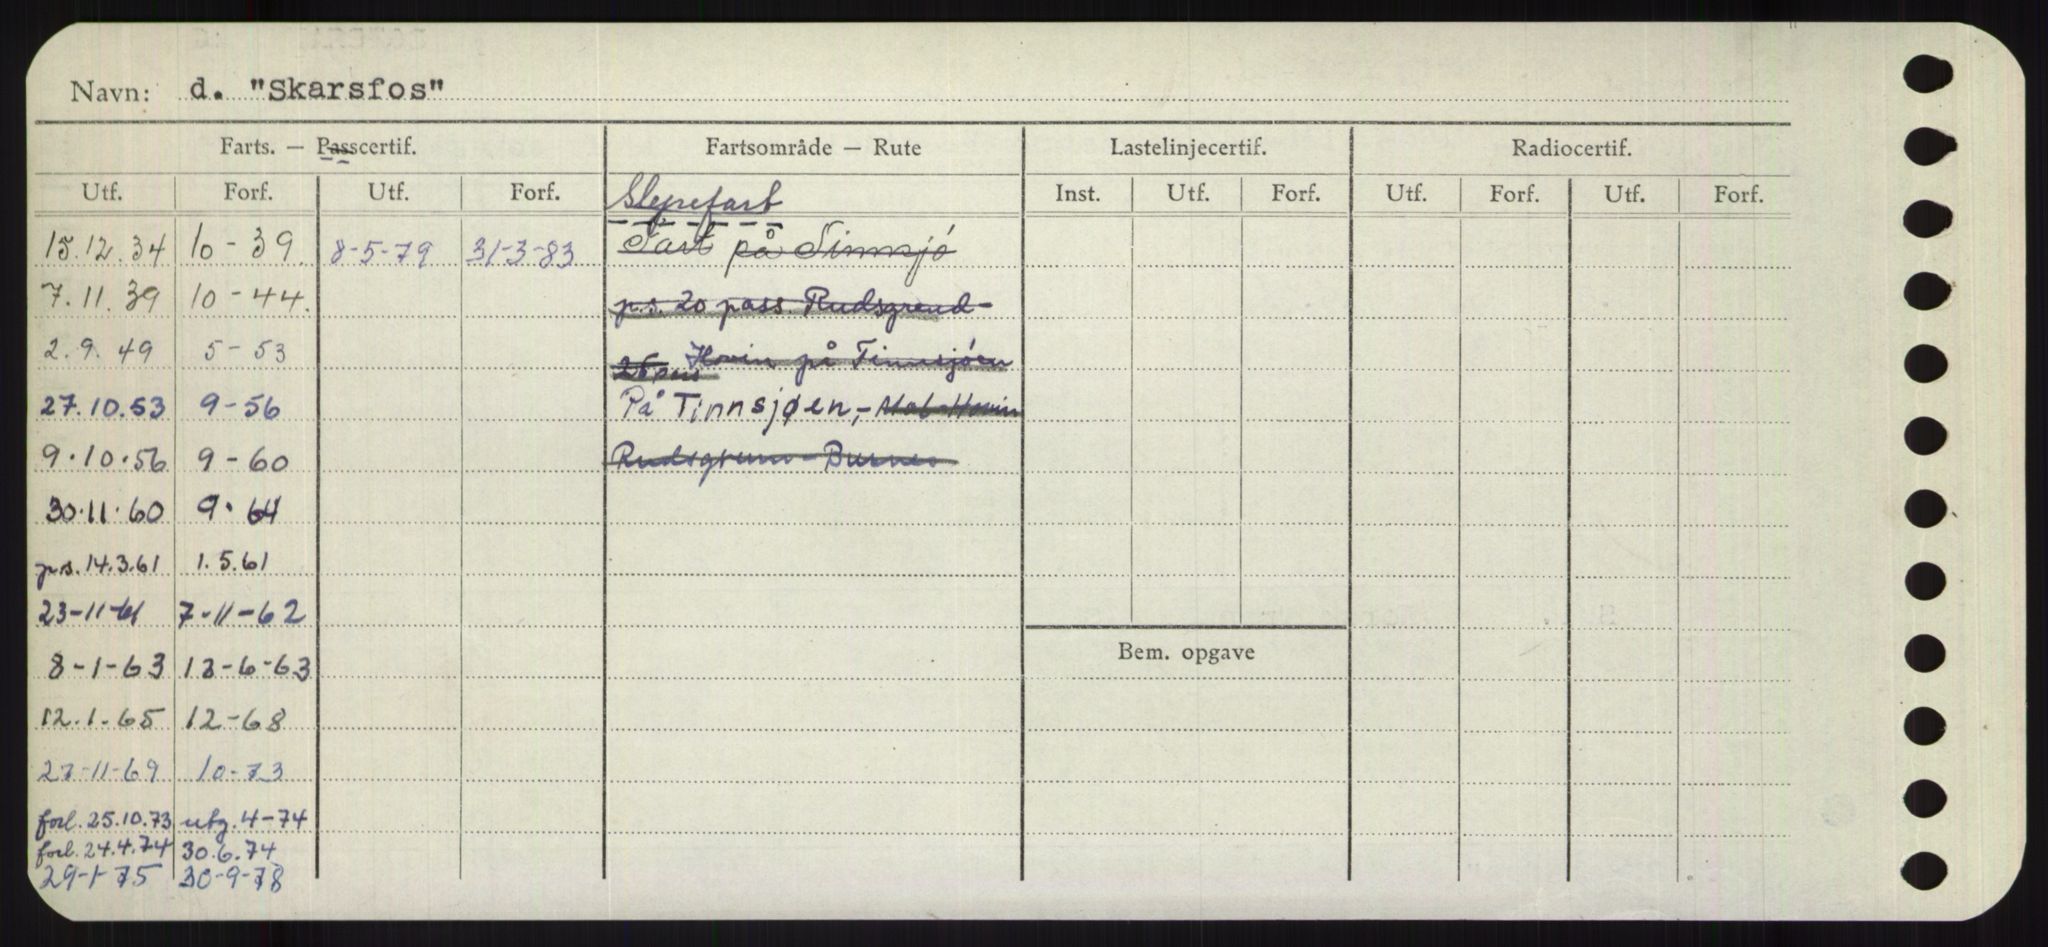 Navn: d. "Skarsfos"
Farts. — Passcertif. Fartsområde — Rute Lastelinjecertif. Radiocertif.
Utf. Forf. Utf. Forf. Slepefart Inst. Utf. Forf. Utf. Forf. Utf. Forf.
15.12.34 10-39. 8-5-79 31-3-83 Fart på Tinnsjø
7.11.39 10-44. p.s. 20 pass Rudsgrend-
2.9.49 5-53 Hovin på Tinnsjøen
25 pass
27.10.53 9-56 På Tinnsjøen,- Hovin
9.10.56 9-60
30.11.60 9.64
p.s. 14.3.61 1.5.61
23-11-61 7-11-62
8-1-63 13-6-63 Bem. opgave
12.1.65 12-68
27-11-69 10-73
forl. 25.10.73 utg. 4-74
forl. 24.4.74 30.6.74
29-1-75 30-9-78